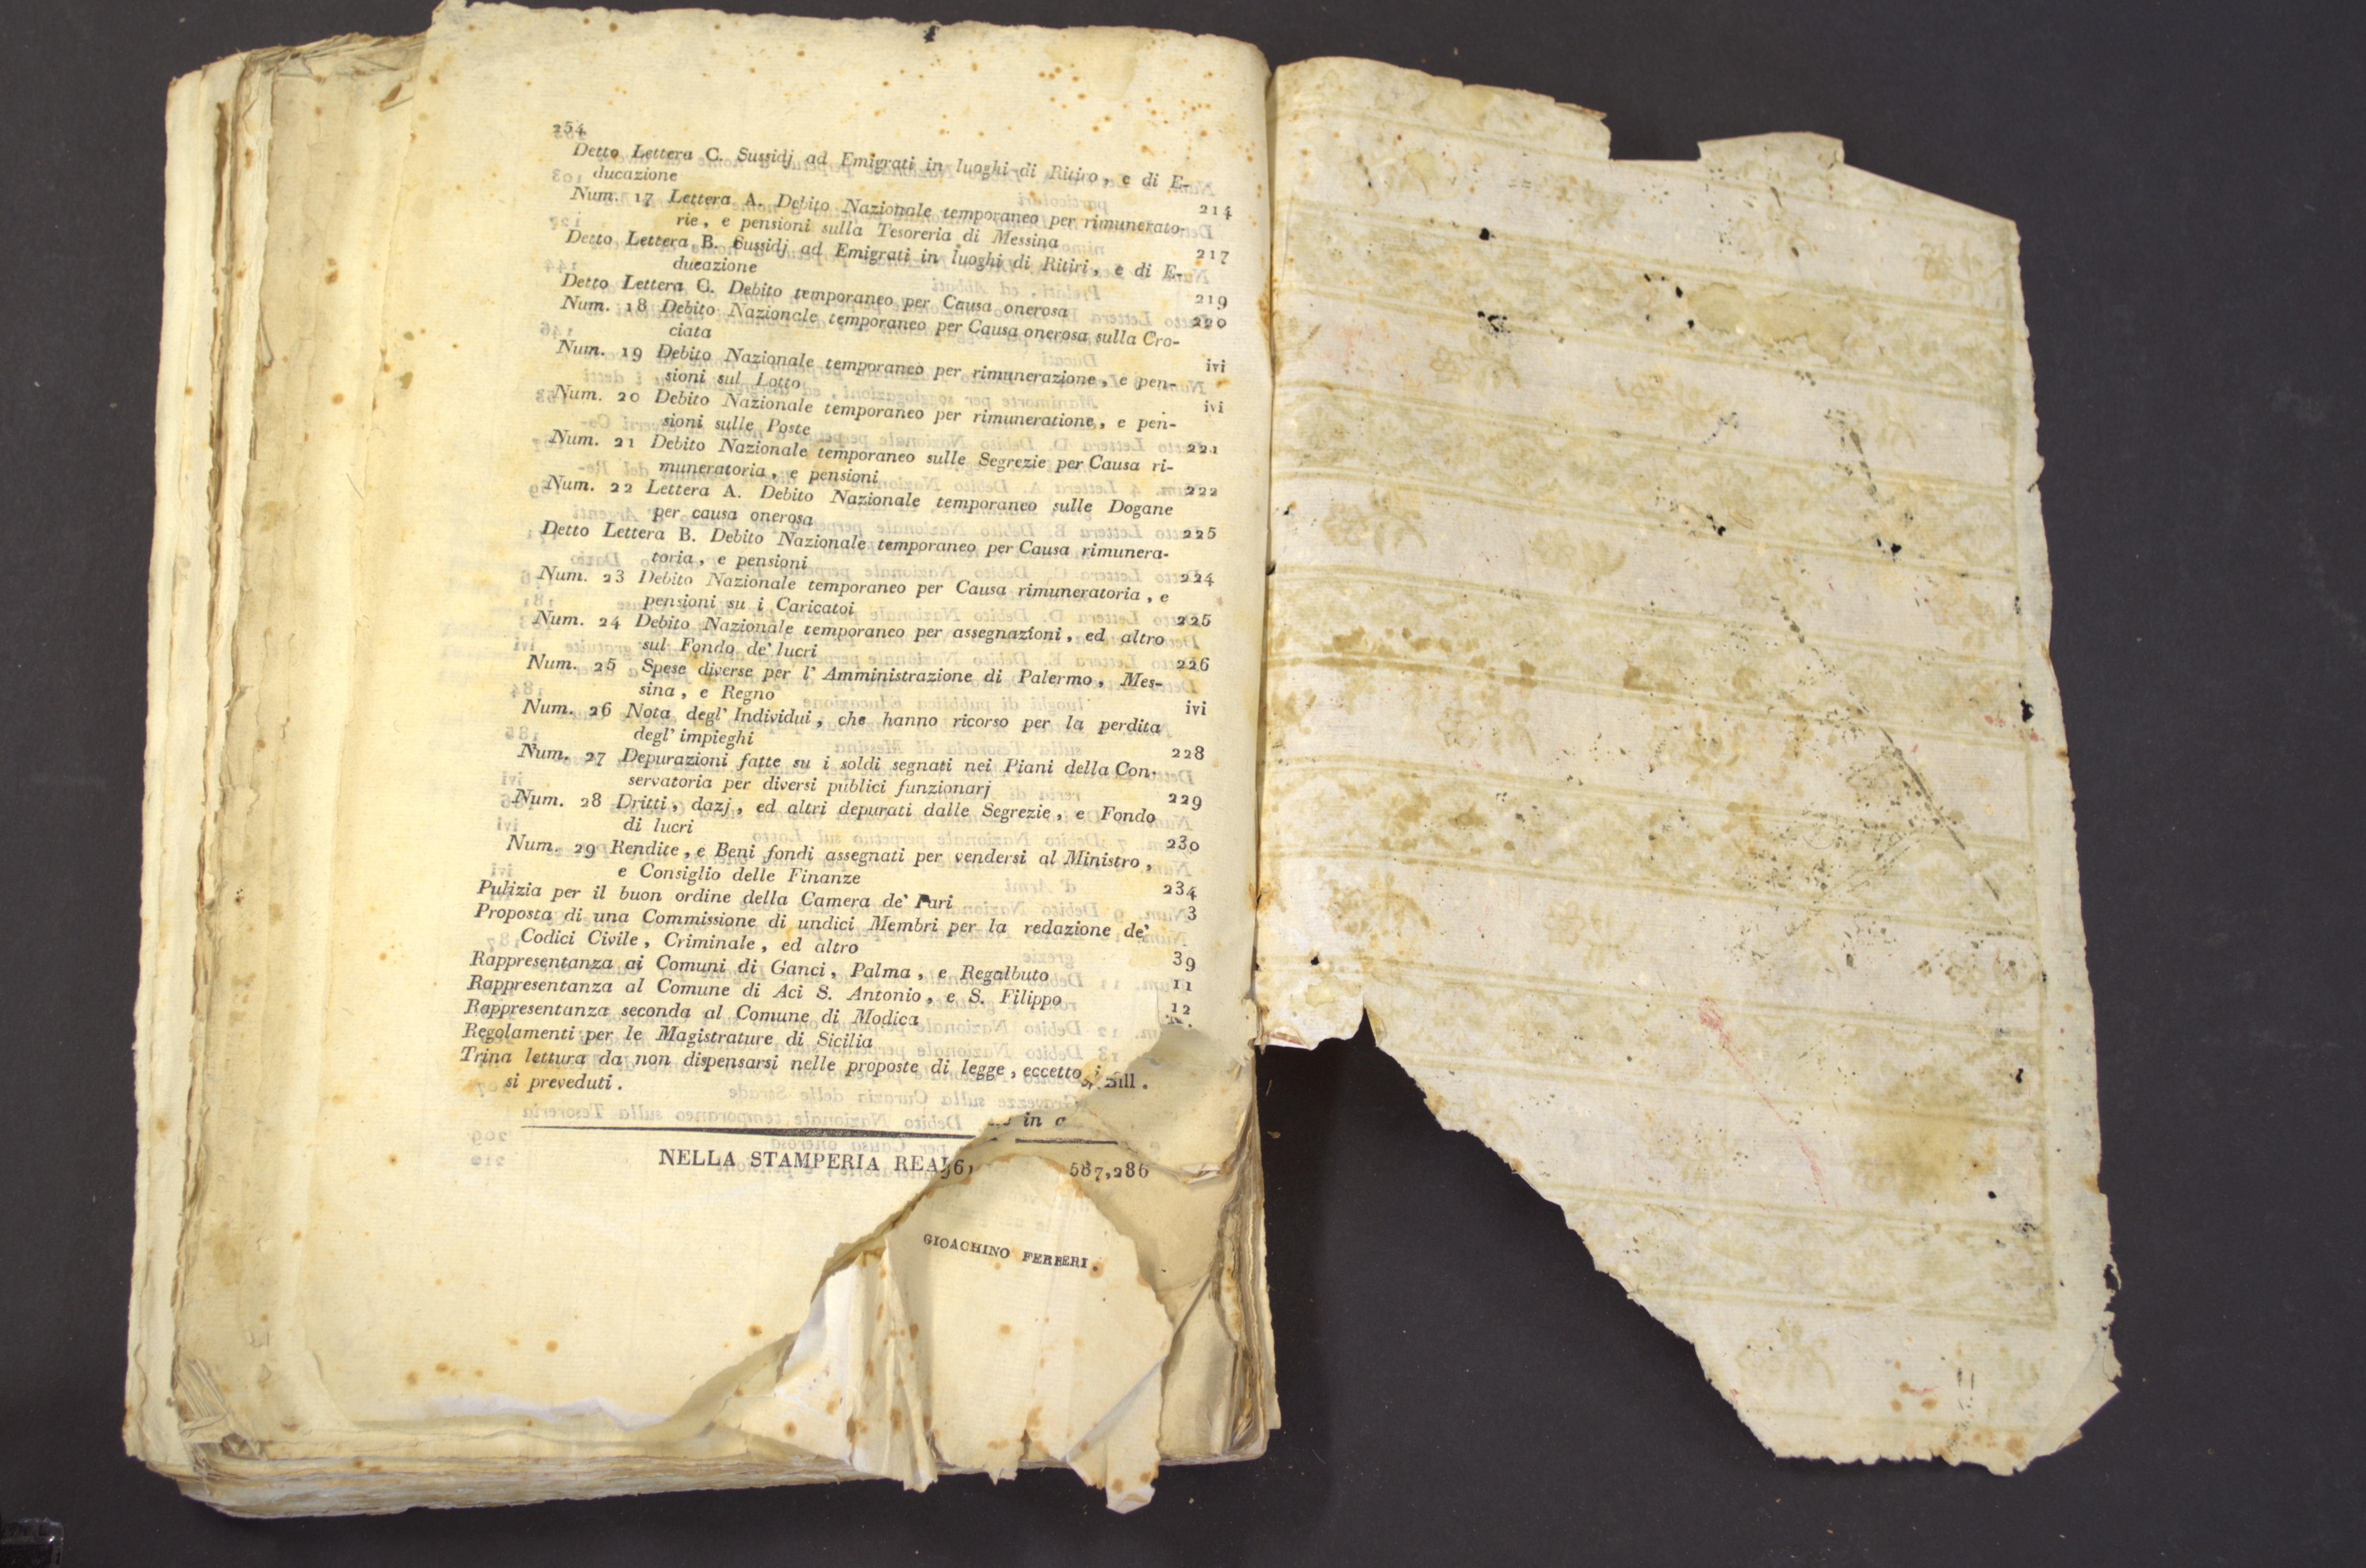 254
Detto Lettera C. Sussidj ad Emigrati in luoghi di Ritiro, e di E-
ducazione 214
Num. 17 Lettera A. Debito Nazionale temporaneo per rimunerato-
rie, e pensioni sulla Tesoreria di Messina 217
Detto Lettera B. Sussidj ad Emigrati in luoghi di Ritiri, e di E-
ducazione 219
Detto Lettera C. Debito temporaneo per Causa onerosa 220
Num. 18 Debito Nazionale temporaneo per Causa onerosa sulla Cro-
ciata ivi
Num. 19 Debito Nazionale temporaneo per rimunerazione, e pen-
sioni sul Lotto ivi
Num. 20 Debito Nazionale temporaneo per rimuneratione, e pen-
sioni sulle Poste 221
Num. 21 Debito Nazionale temporaneo sulle Segrezie per Causa ri-
muneratoria, e pensioni 222
Num. 22 Lettera A. Debito Nazionale temporaneo sulle Dogane
per causa onerosa 225
Detto Lettera B. Debito Nazionale temporaneo per Causa rimunera-
toria, e pensioni 224
Num. 23 Debito Nazionale temporaneo per Causa rimuneratoria, e
pensioni su i Caricatoi 225
Num. 24 Debito Nazionale temporaneo per assegnazioni, ed altro
sul Fondo de' lucri 226
Num. 25 Spese diverse per l' Amministrazione di Palermo, Mes-
sina, e Regno ivi
Num. 26 Nota degl' Individui, che hanno ricorso per la perdita
degl' impieghi 228
Num. 27 Depurazioni fatte su i soldi segnati nei Piani della Con-
servatoria per diversi publici funzionarj 229
Num. 28 Dritti, dazj, ed altri depurati dalle Segrezie, e Fondo
di lucri 230
Num. 29 Rendite, e Beni fondi assegnati per vendersi al Ministro,
e Consiglio delle Finanze 234
Pulizia per il buon ordine della Camera de' Pari 3
Proposta di una Commissione di undici Membri per la redazione de'
Codici Civile, Criminale, ed altro 39
Rappresentanza ai Comuni di Ganci, Palma, e Regalbuto 11
Rappresentanza al Comune di Aci S. Antonio, e S. Filippo 12
Rappresentanza seconda al Comune di Modica
Regolamenti per le Magistrature di Sicilia
Trina lettura da non dispensarsi nelle proposte di legge, eccetto i
si preveduti.
in
NELLA STAMPERIA REA
587,286
GIOACHINO FERRERI.